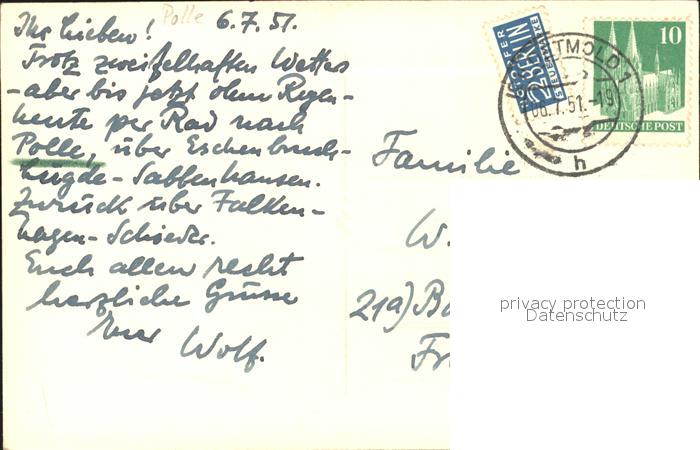 Polle
Ihr Lieben! 6.7.51.
Trotz zweifelhaften Wetters
- aber bis jetzt ohne Regen -
heute per Rad nach
Polle, über Eschenbruch -
Lügde - Sabbenhausen.
Zurück über Falken-
hagen - Schieder.
Euch allen recht
herzliche Grüsse
Euer Wolf.
NOTOPFER
2 BERLIN
STEUERMARKE
DETMOLD 1
06.7.51.-19
h
10
DEUTSCHE POST
Familie
W.
21a) Bo
Fr
privacy protection
Datenschutz